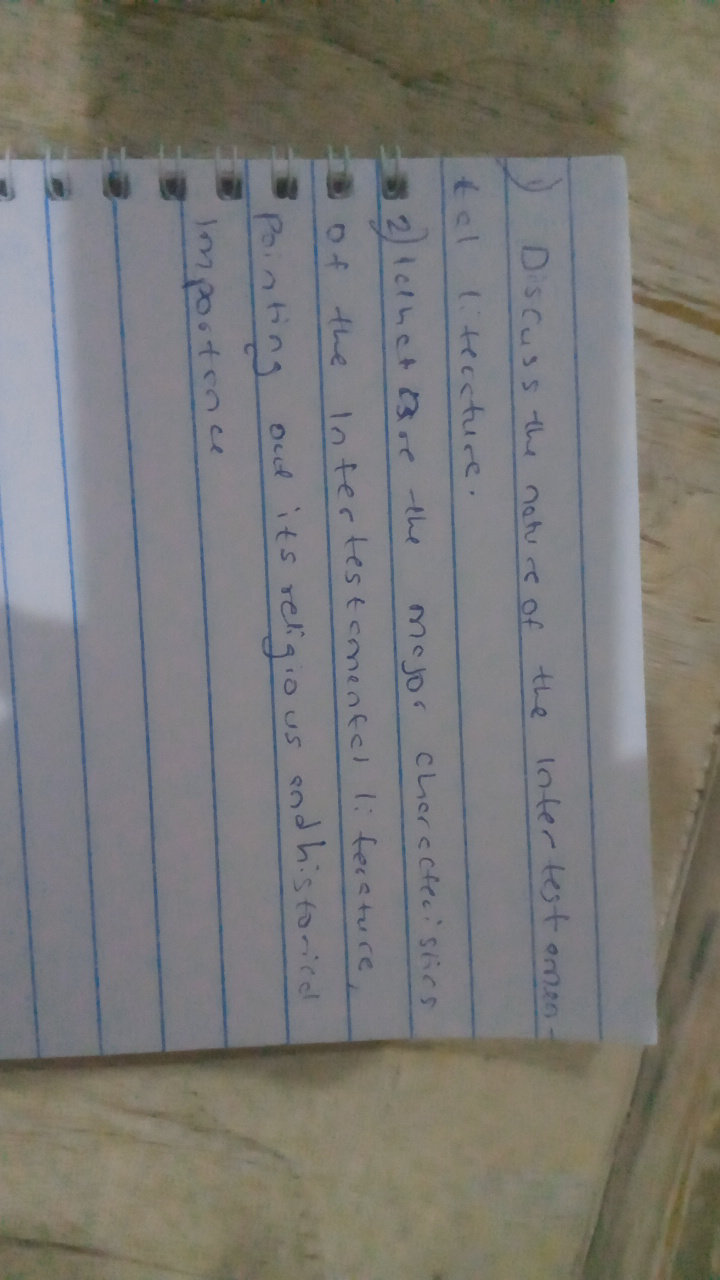 1) Discuss the nature of the Intertestamen-
tal literature.
2) What are the major characteristics
of the Intertestamental literature,
Pointing out its religious and historical
Importance